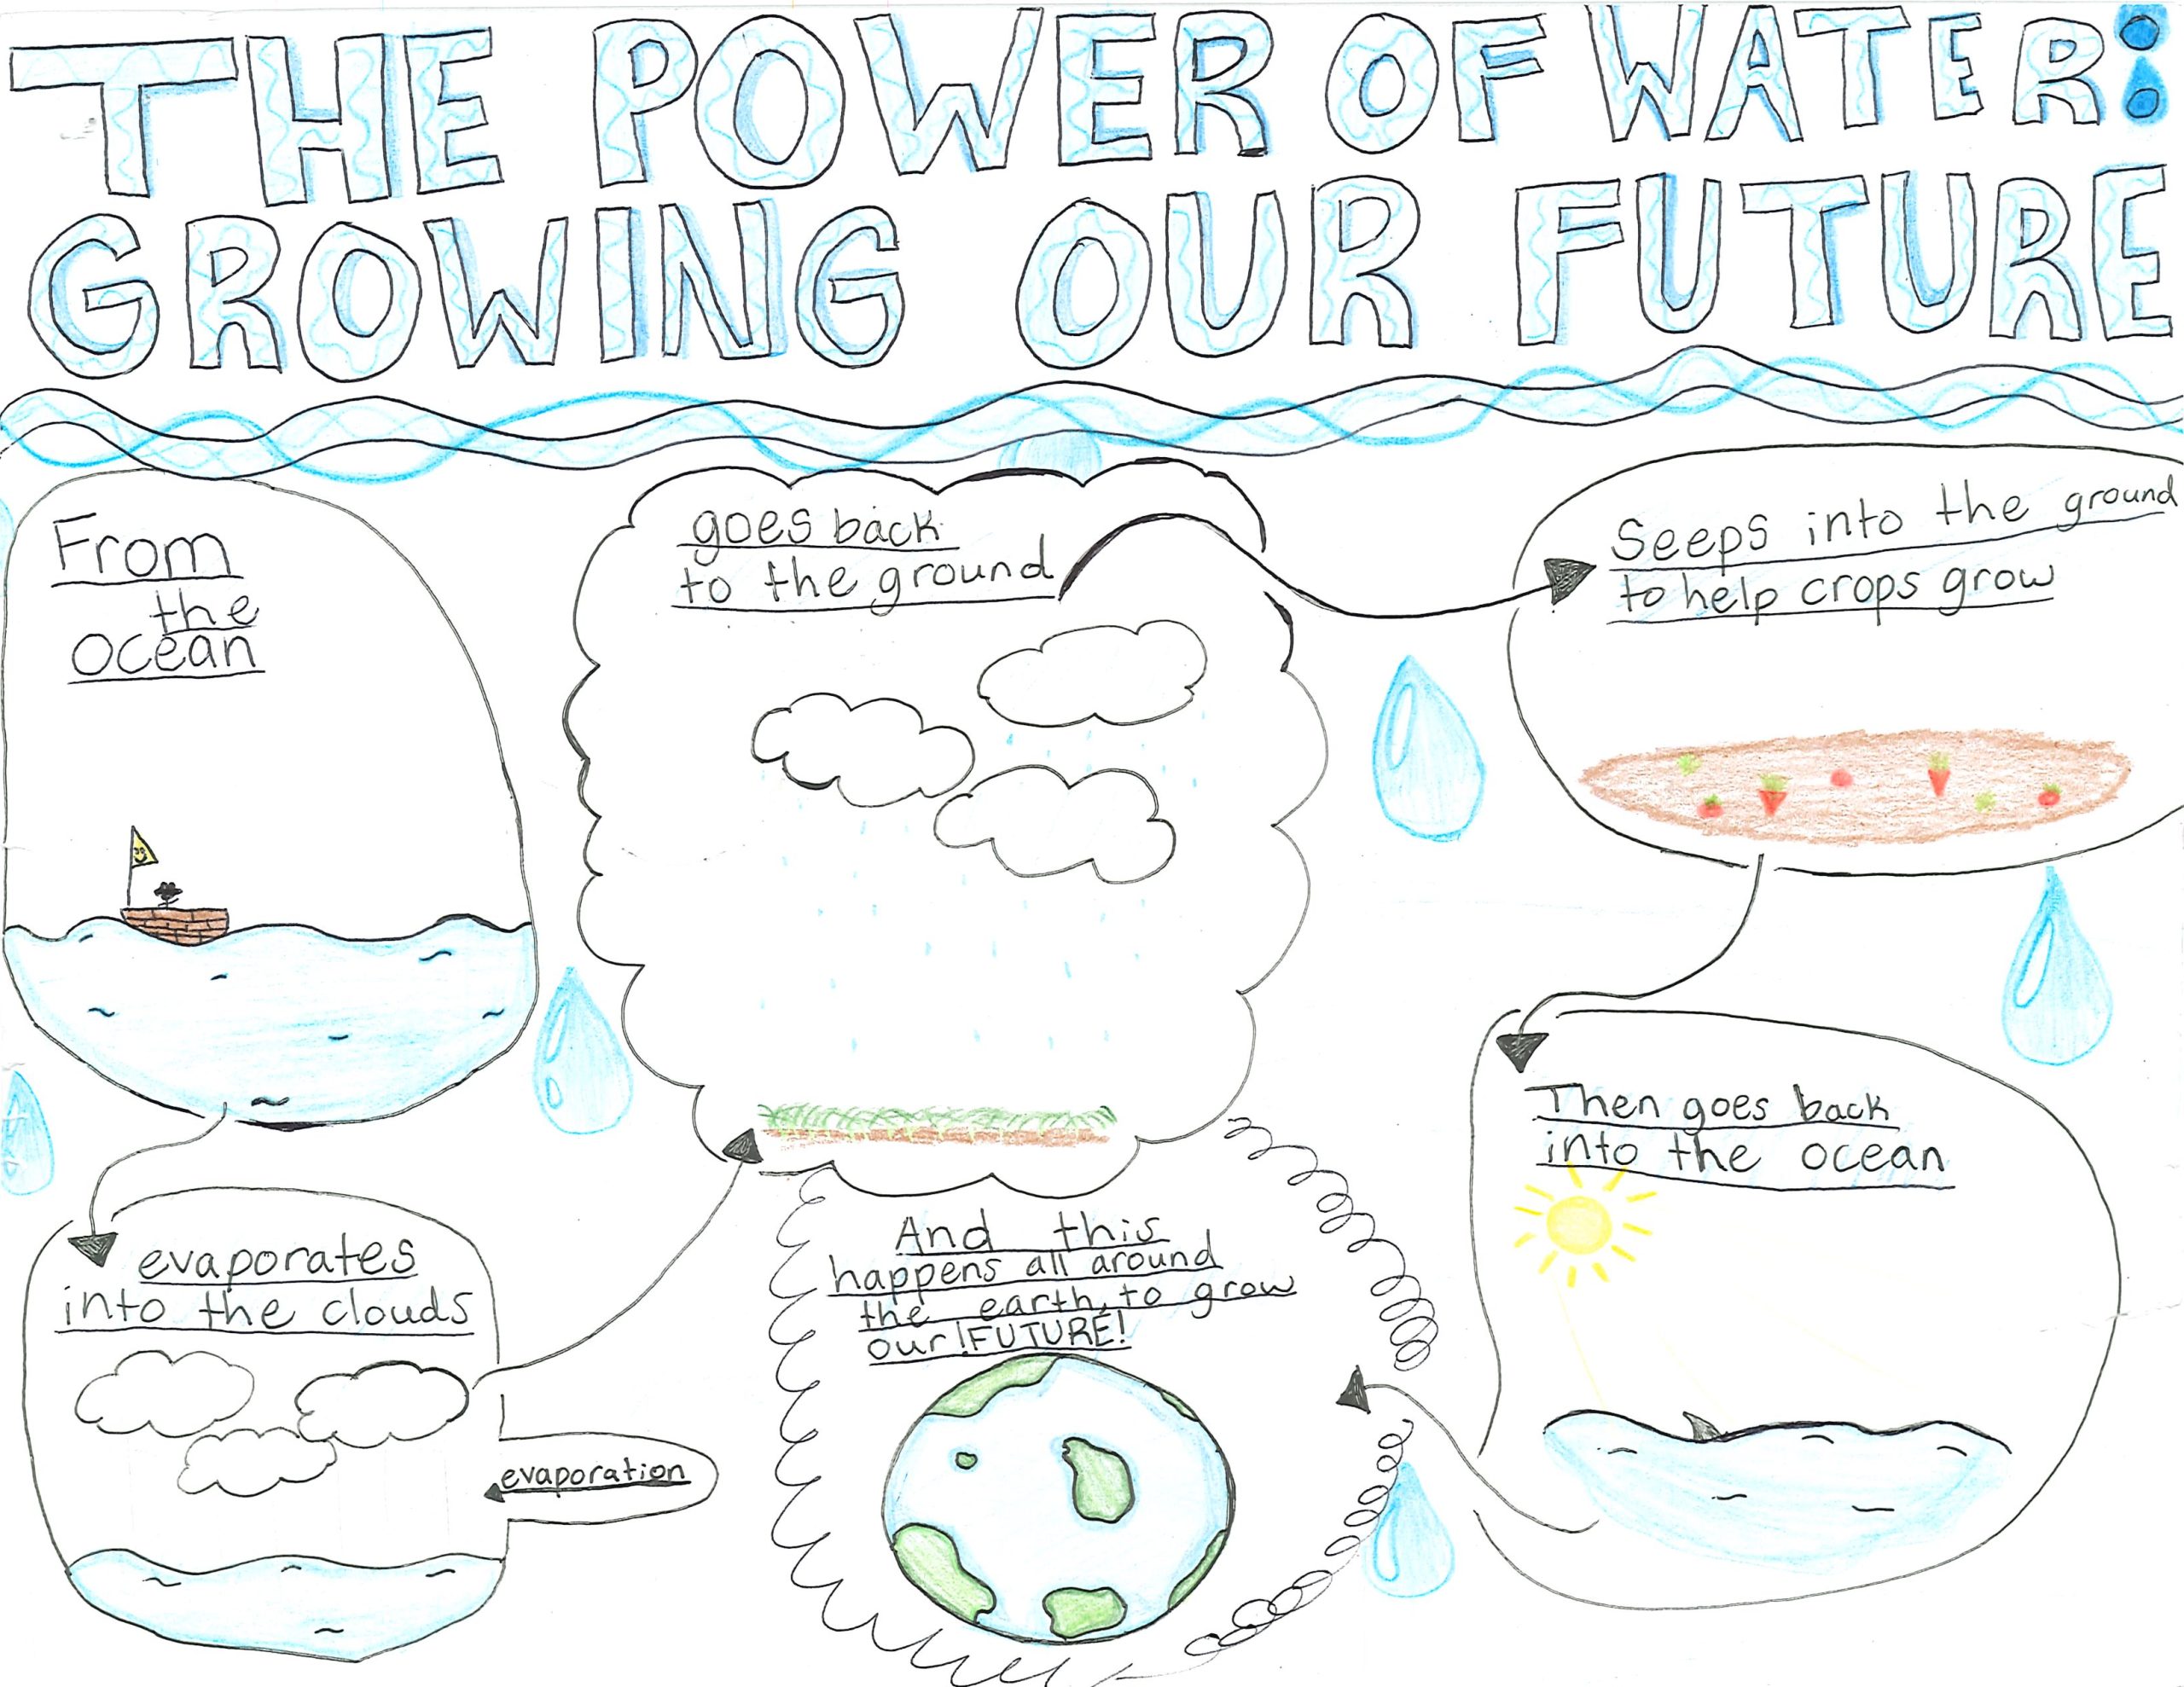 THE POWER OF WATER:
GROWING OUR FUTURE
From
the
ocean
evaporates
into the clouds
evaporation
goes back
to the ground
Seeps into the ground
to help crops grow
Then goes back
into the ocean
And this
happens all around
the earth, to grow
our !FUTURE!